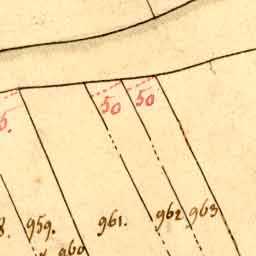 50 50
5.
8. 959. 961. 962 963
960